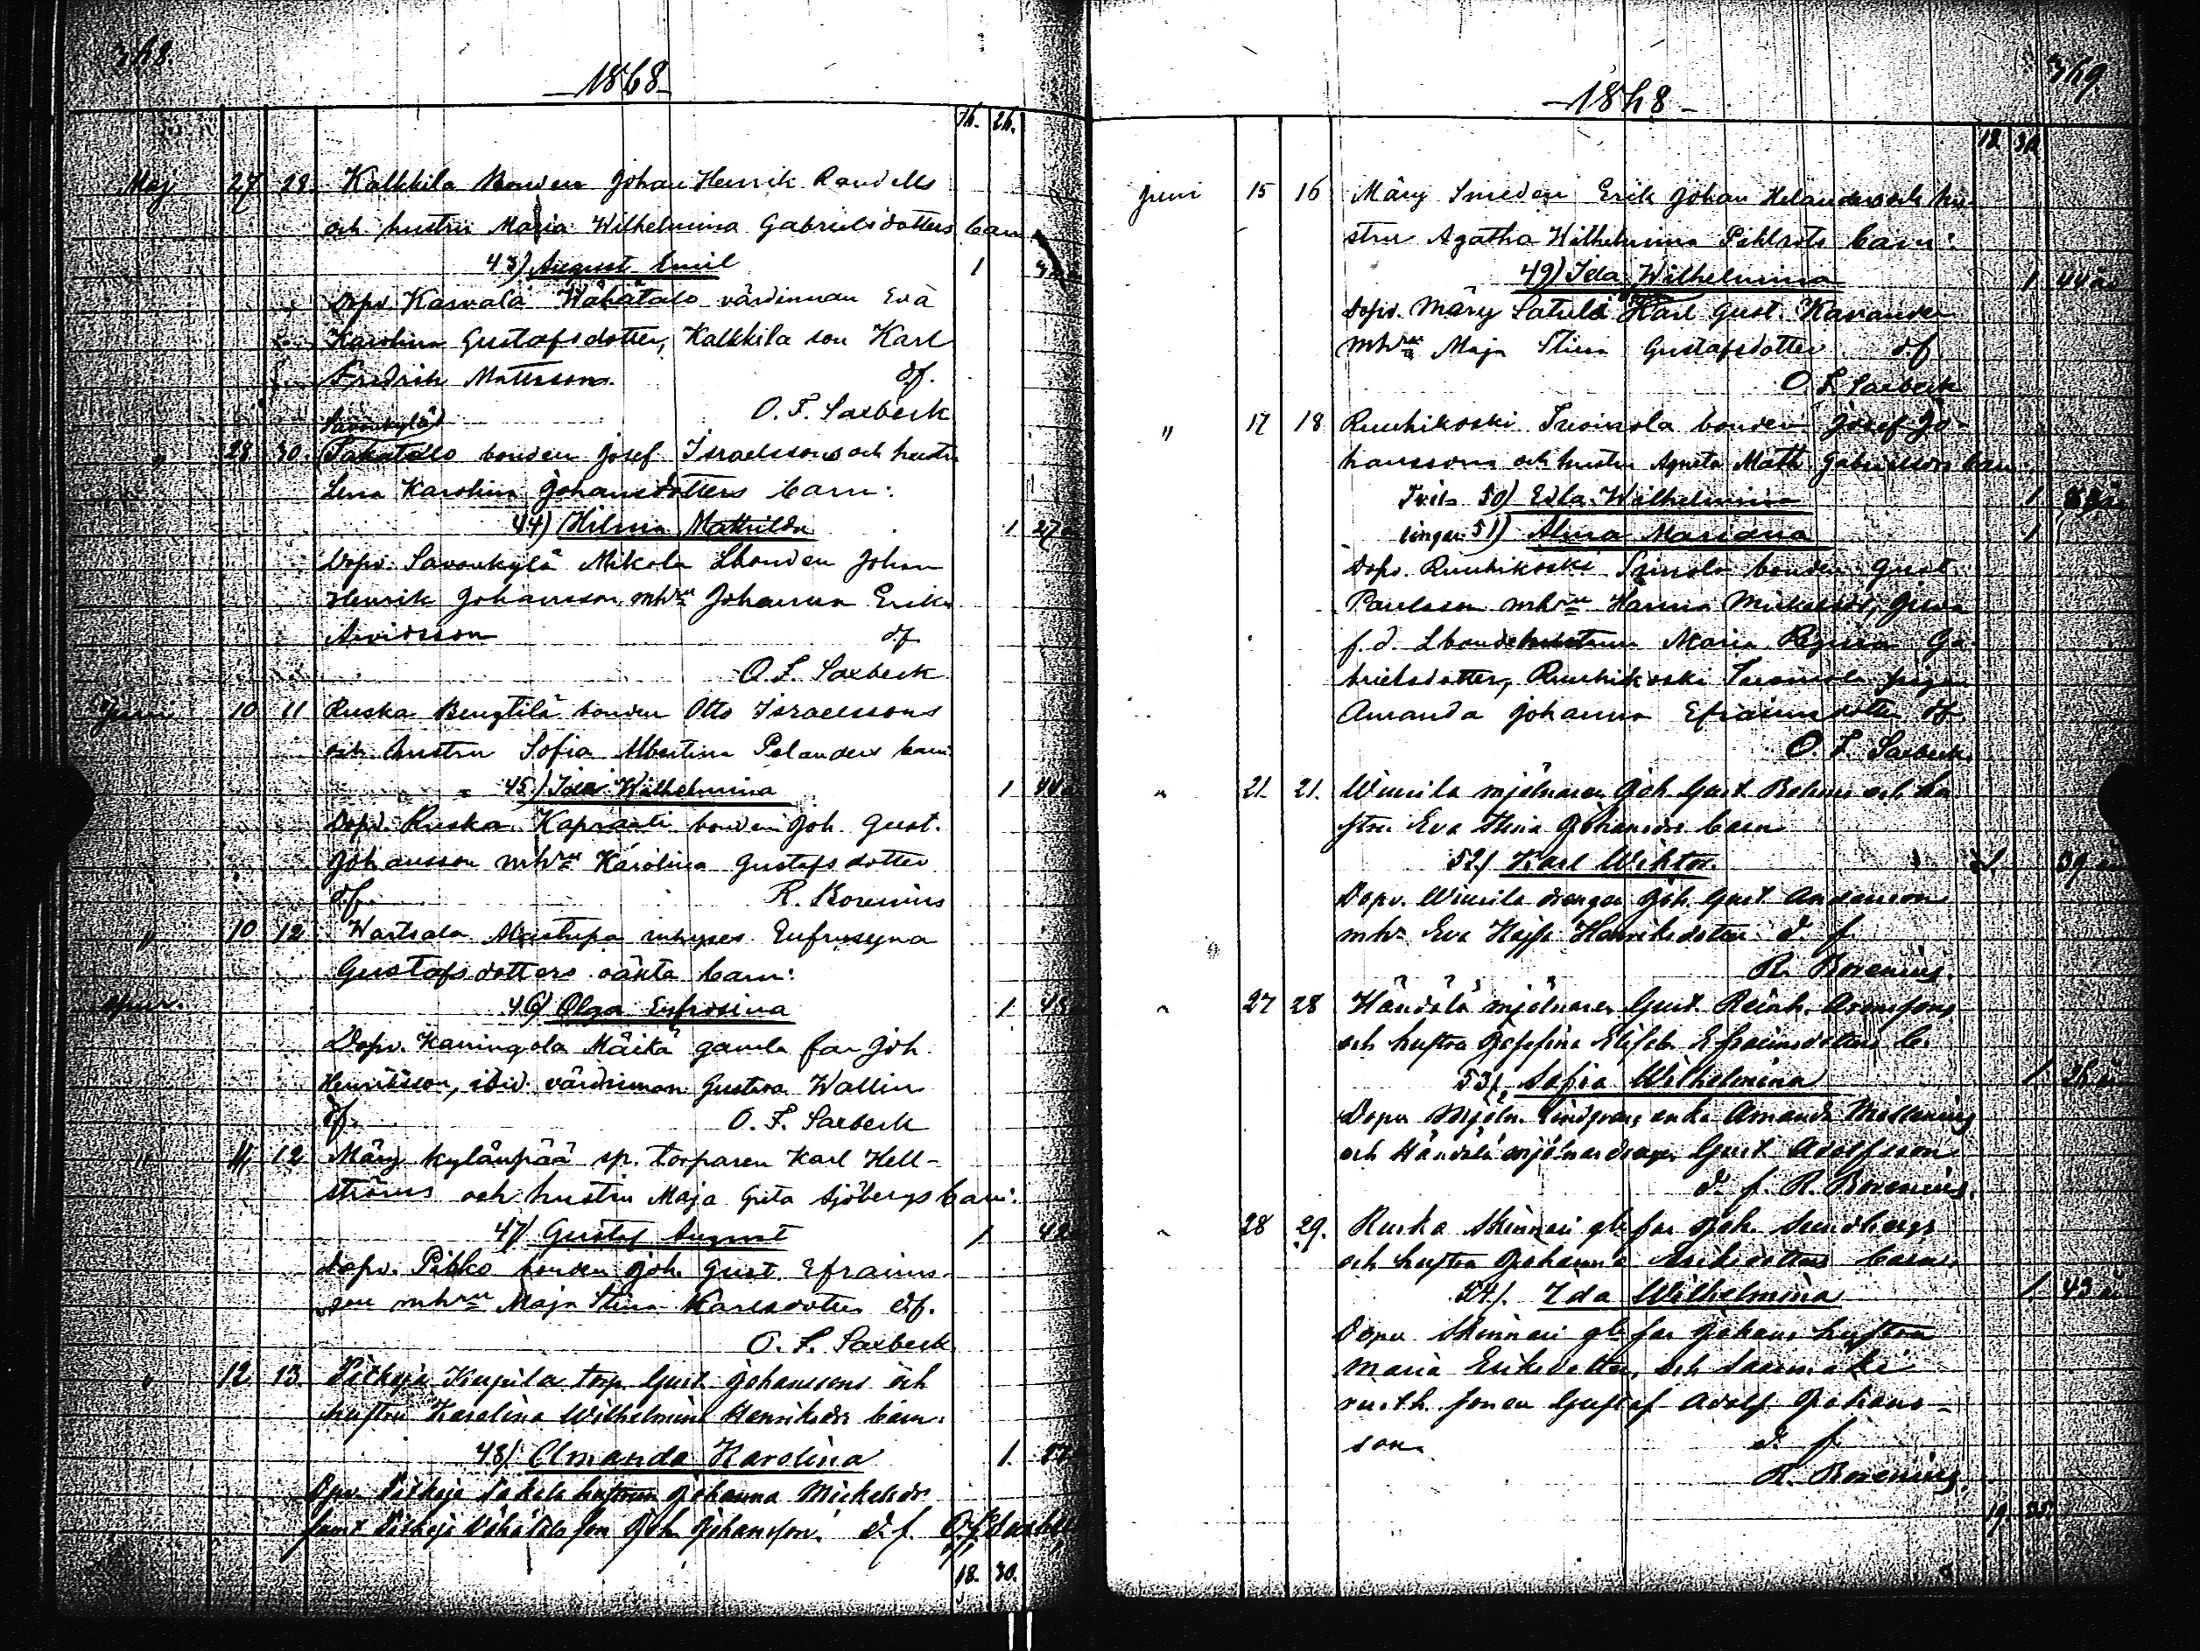 368.
1868
16. 26.
Maj 27 28. Kalkkila Bonden Johan Henrik Randells
och hustru Maria Wilhelmina Gabrielsdotters barn
43) August Emil 1
Dopv. Karvala Wähätalo värdinnan Eva
Karolina Gustafsdotter, Kalkkila son Karl
Fredrik Mattsson. d.f.
O. F. Saxbeck
Savonkylä
" 28 30. Takatalo bonden Josef Israelssons och hustru
Lena Karolina Johansdotters barn:
44) Hilma Mathilda 1 27
Dopv. Savonkylä Mikola Lbonden Johan
Henrik Johansson mhru Johanna Eriks
Arvidsson df
O. F. Saxbeck
Juni 10 11 Ruska Bengtilä bonden Otto Israelssons
och hustru Sofia Albertina Polanders barn
45) Ida Wilhelmina 1 44
Dopv. Ruska Kapranti bonden Joh. Gust.
Johansson mhru Karolina Gustafsdotter
d.f. R. Borenius
" 10 12 Wartsala Mastupa inhyses Eufrosyna
Gustafsdotters oäkta barn:
46) Olga Eufrosina 1 45
Dopv. Kaningola Mäikä gamla far Joh.
Henriksson, ibid. värdinnan Gustava Wallin
df. O. F. Saxbeck
" 11 12 Märy kylänpää sp. torparen Karl Hell-
ströms och hustru Maja Greta Sjöbergs barn:
47) Gustaf August 1 42
Dopv. Pitko bonden Joh. Gust. Efraims-
son mhru Maja Stina Karlsdotter df.
O. F. Saxbeck
" 12 13. Pitkäjä Kujula torp. Gust. Johanssons och
hustru Karolina Wilhelmina Henriksdrs barn:
48) Amanda Karolina 1.
Dopv. Pitkäjä hustrun Johanna Mickelsdr
samt Pitkäjä Wähätalo son Joh. Johansson. d. f. O. F. Saxbeck
18. 30.
369
1868
18 30
Juni 15 16 Märy Smeden Erik Johan Helanders och hu-
stru Agatha Wilhelmina Pihlrots barn:
49) Ida Wilhelmina 1 44 år
Dopv. Märy Satula Karl Gust. Kavander
mhru Maja Stina Gustafsdotter d.f.
O. F. Saxbeck
" 17 18 Ruuhikoski Tuoinola bonden Josef Jo-
hanssons och hustru Agneta Math. Gabrielsdrs barn:
Tvil- 50) Edla Wilhelmina 1
lingar 51) Alma Mariana 1
Dopv. Ruuhikoski bonden Gust.
Paulsson mhru Hanna Mickelsdr,
f. d. Lbondehustrun Maria Regina Ga-
brielsdotter, Ruuhikoski Tuoinola pigan
Amanda Johanna Efraimsdotter df
O. F. Saxbeck.
" 21. 21. Winnila mjölnaren Joh. Gust. Bohms och hu
stru Eva Stina Johansdrs barn
52) Karl Wiktor. 1. 39 år
Dopv. Winnila drängen Joh. Gust. Andersson
mhr Eva Kajsa Henriksdotter d. f.
R. Borenius.
" 27 28 Händälä mjölnaren Gust. Reinh. Aronssons
och hustru Josefina Elisab. Efraimsdotters b.
53) Sofia Wilhelmina 1 36 år
Dopv. Mjöln. Lindgrens enka Amanda Mellenius
och Händälä mjölnaredrängen Gust. Adolfsson
d. f. R. Borenius.
" 28 29. Ruska Skinnari gle far Joh. Sundbergs
och hustru Johanna Arvidsdotters barn.
54) Ida Wilhelmina 1 43 år
Dopv Skinnari gle far Johans hustru
Maria Eriksdotter, och Saunmäki
rusth. sonen Gustaf Adolf Johans-
son. d. f.
R. Borenius.
19. 35.